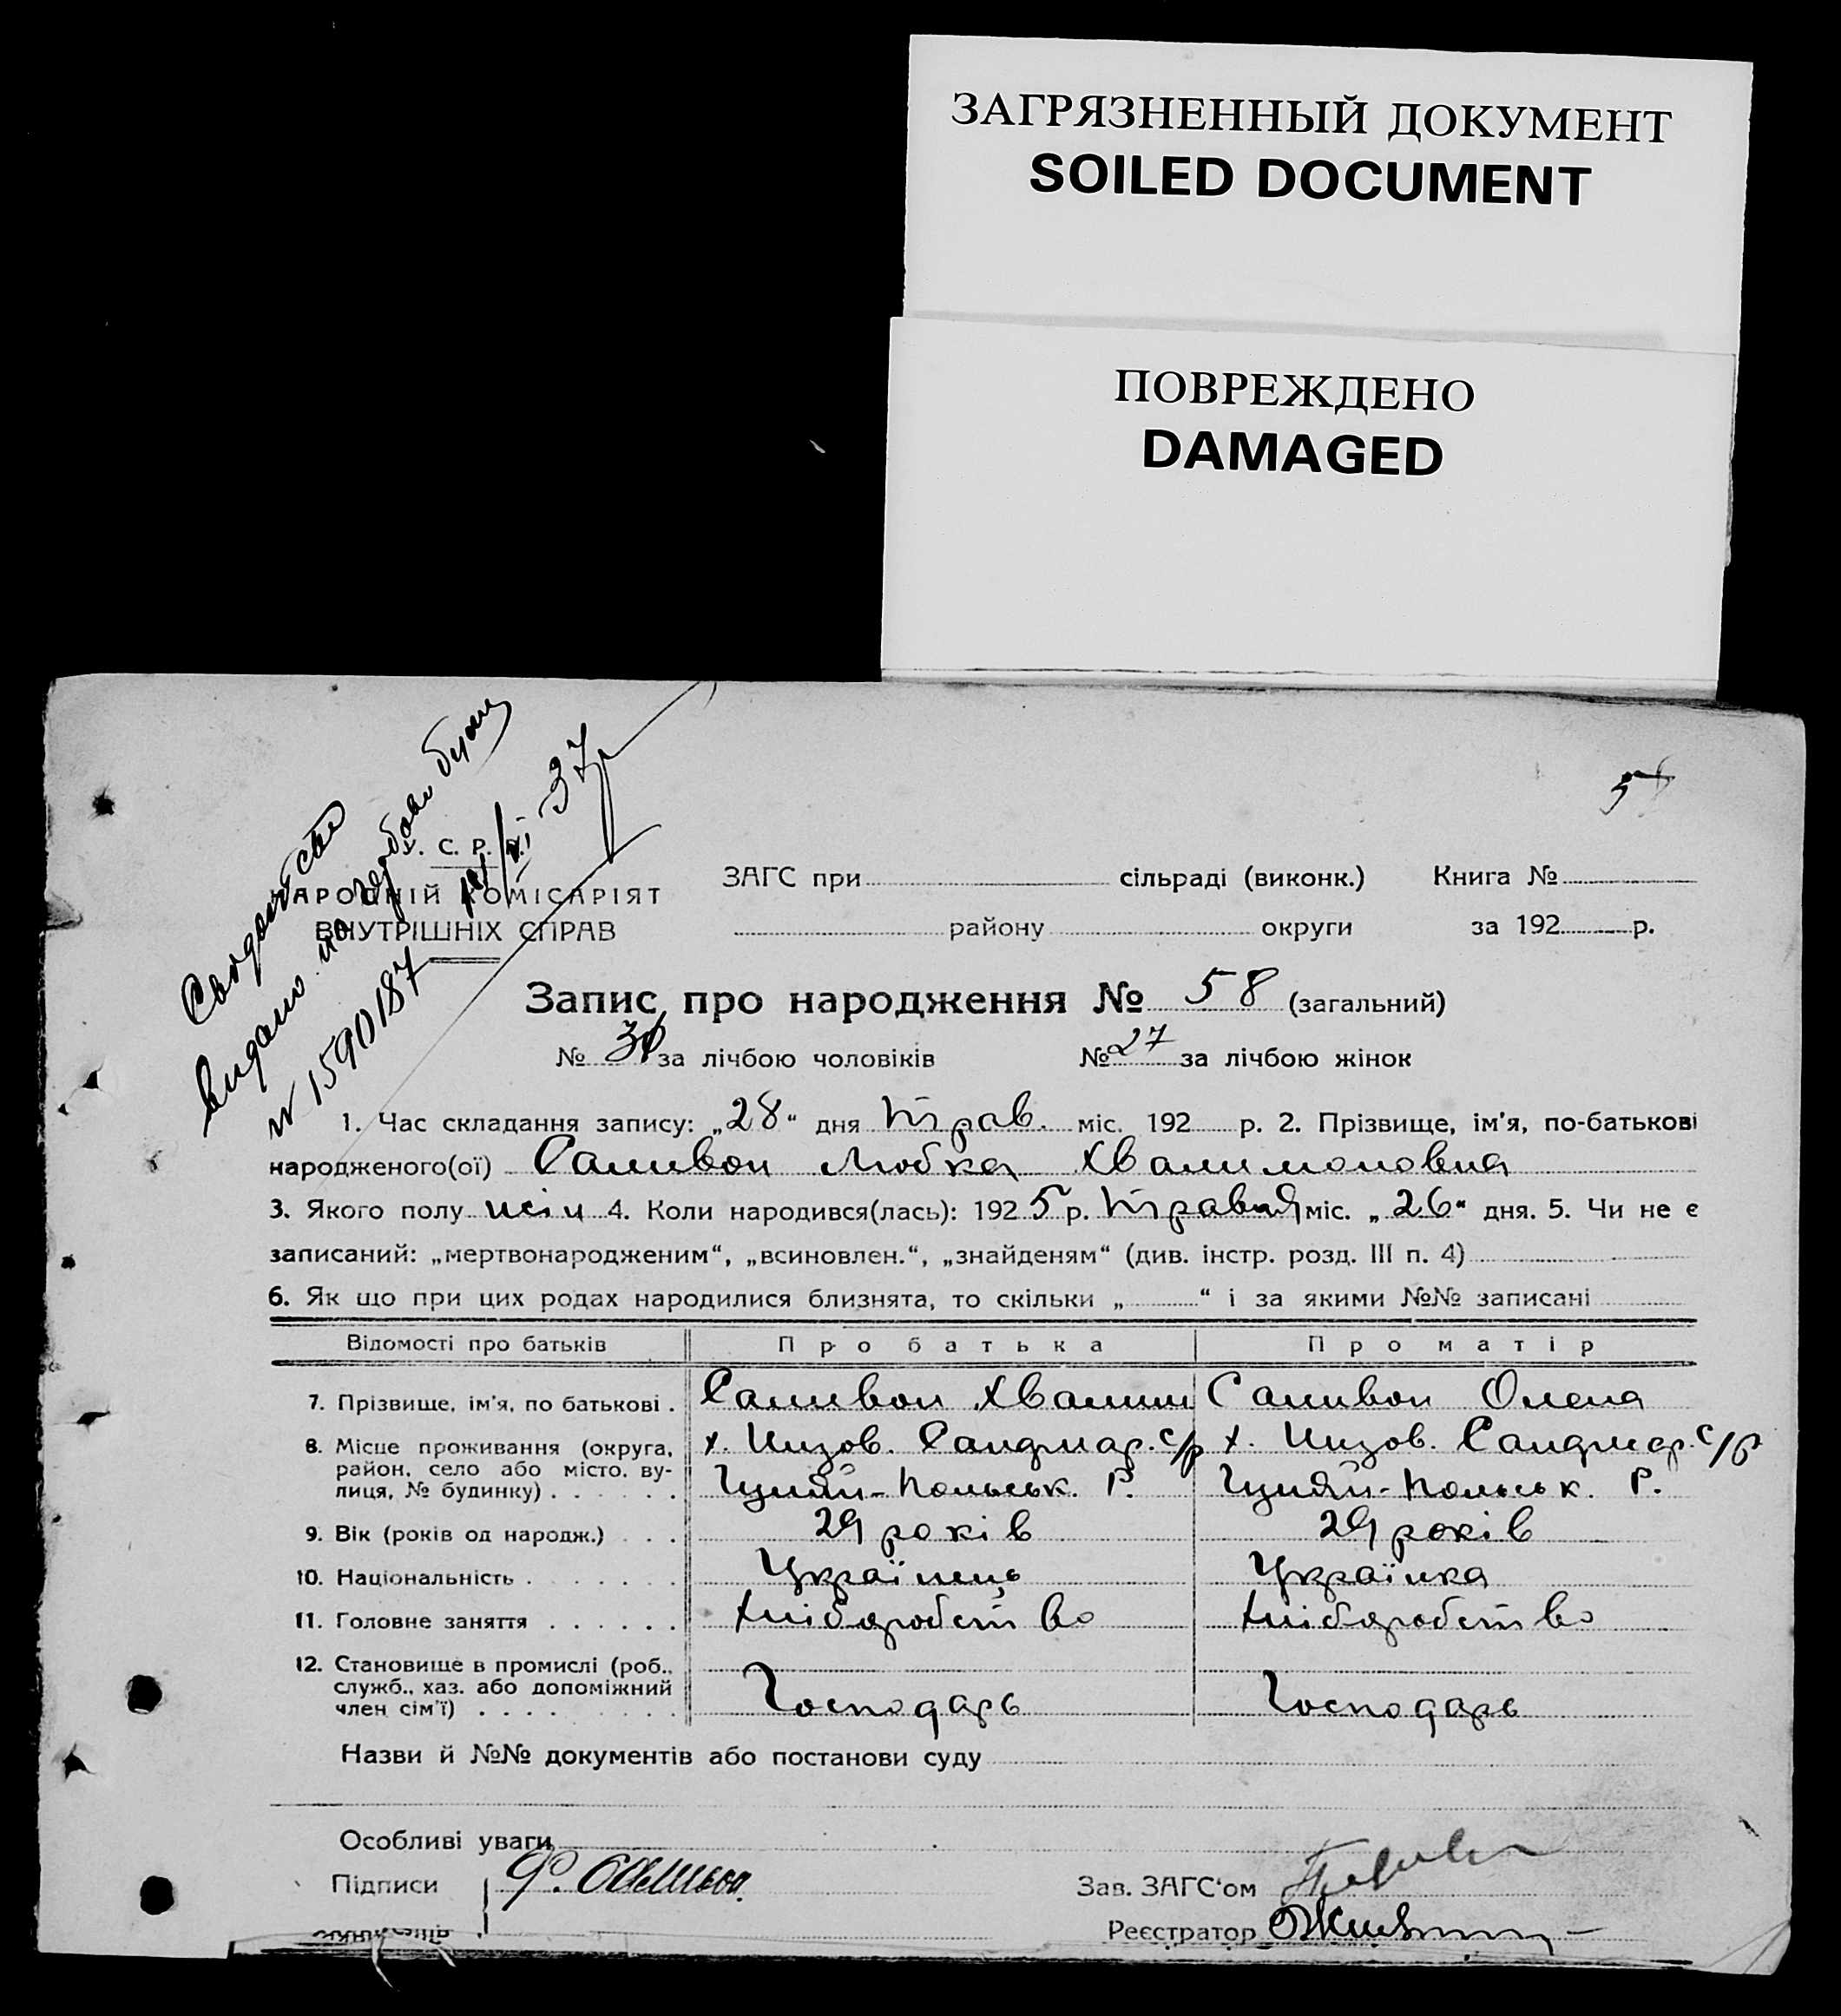 ЗАГРЯЗНЕННЫЙ ДОКУМЕНТ
SOILED DOCUMENT
ПОВРЕЖДЕНО
DAMAGED
Свідоцтво
видано на
№ 1590187
37р
У. С. Р. Р.
НАРОДНІЙ КОМІСАРІЯТ
ВНУТРІШНІХ СПРАВ
ЗАГС при сільраді (виконк.) Книга №
району округи за 192 р.
Запис про народження № 58 (загальний)
№ за лічбою чоловіків № 27 за лічбою жінок
1. Час складання запису: „28“ дня Трав. міс. 192 р. 2. Прізвище, ім'я, по-батькові
народженого(ої) Саливон Любка Хвалимоновна
3. Якого полу жін 4. Коли народився(лась): 1925 р. Травня міс. „26“ дня. 5. Чи не є
записаний: „мертвонародженим“, „всиновлен.“, „знайденям“ (див. інстр. розд. III п. 4)
6. Як що при цих родах народилися близнята, то скільки „ “ і за якими №№ записані
Відомості про батьків Про батька Про матір
7. Прізвище, ім'я, по батькові . Саливон Хвалим Саливон Олена
8. Місце проживання (округа, х. Низов. Сандмар. с/р х. Низов. Сандмар. с/р
район, село або місто, ву-
лиця, № будинку) . . . . . . Р. Р.
9. Вік (років од народж.) . . . 29 років 29 років
10. Національність . . . . . . . Українець Українка
11. Головне заняття . . . . . . Хліборобство Хліборобство
12. Становище в промислі (роб.,
служб., хаз. або допоміжний
член сім'ї) . . . . . . . . . Господарь Господарь
Назви й №№ документів або постанови суду
Особливі уваги
Підписи Зав. ЗАГС'ом
Реєстратор